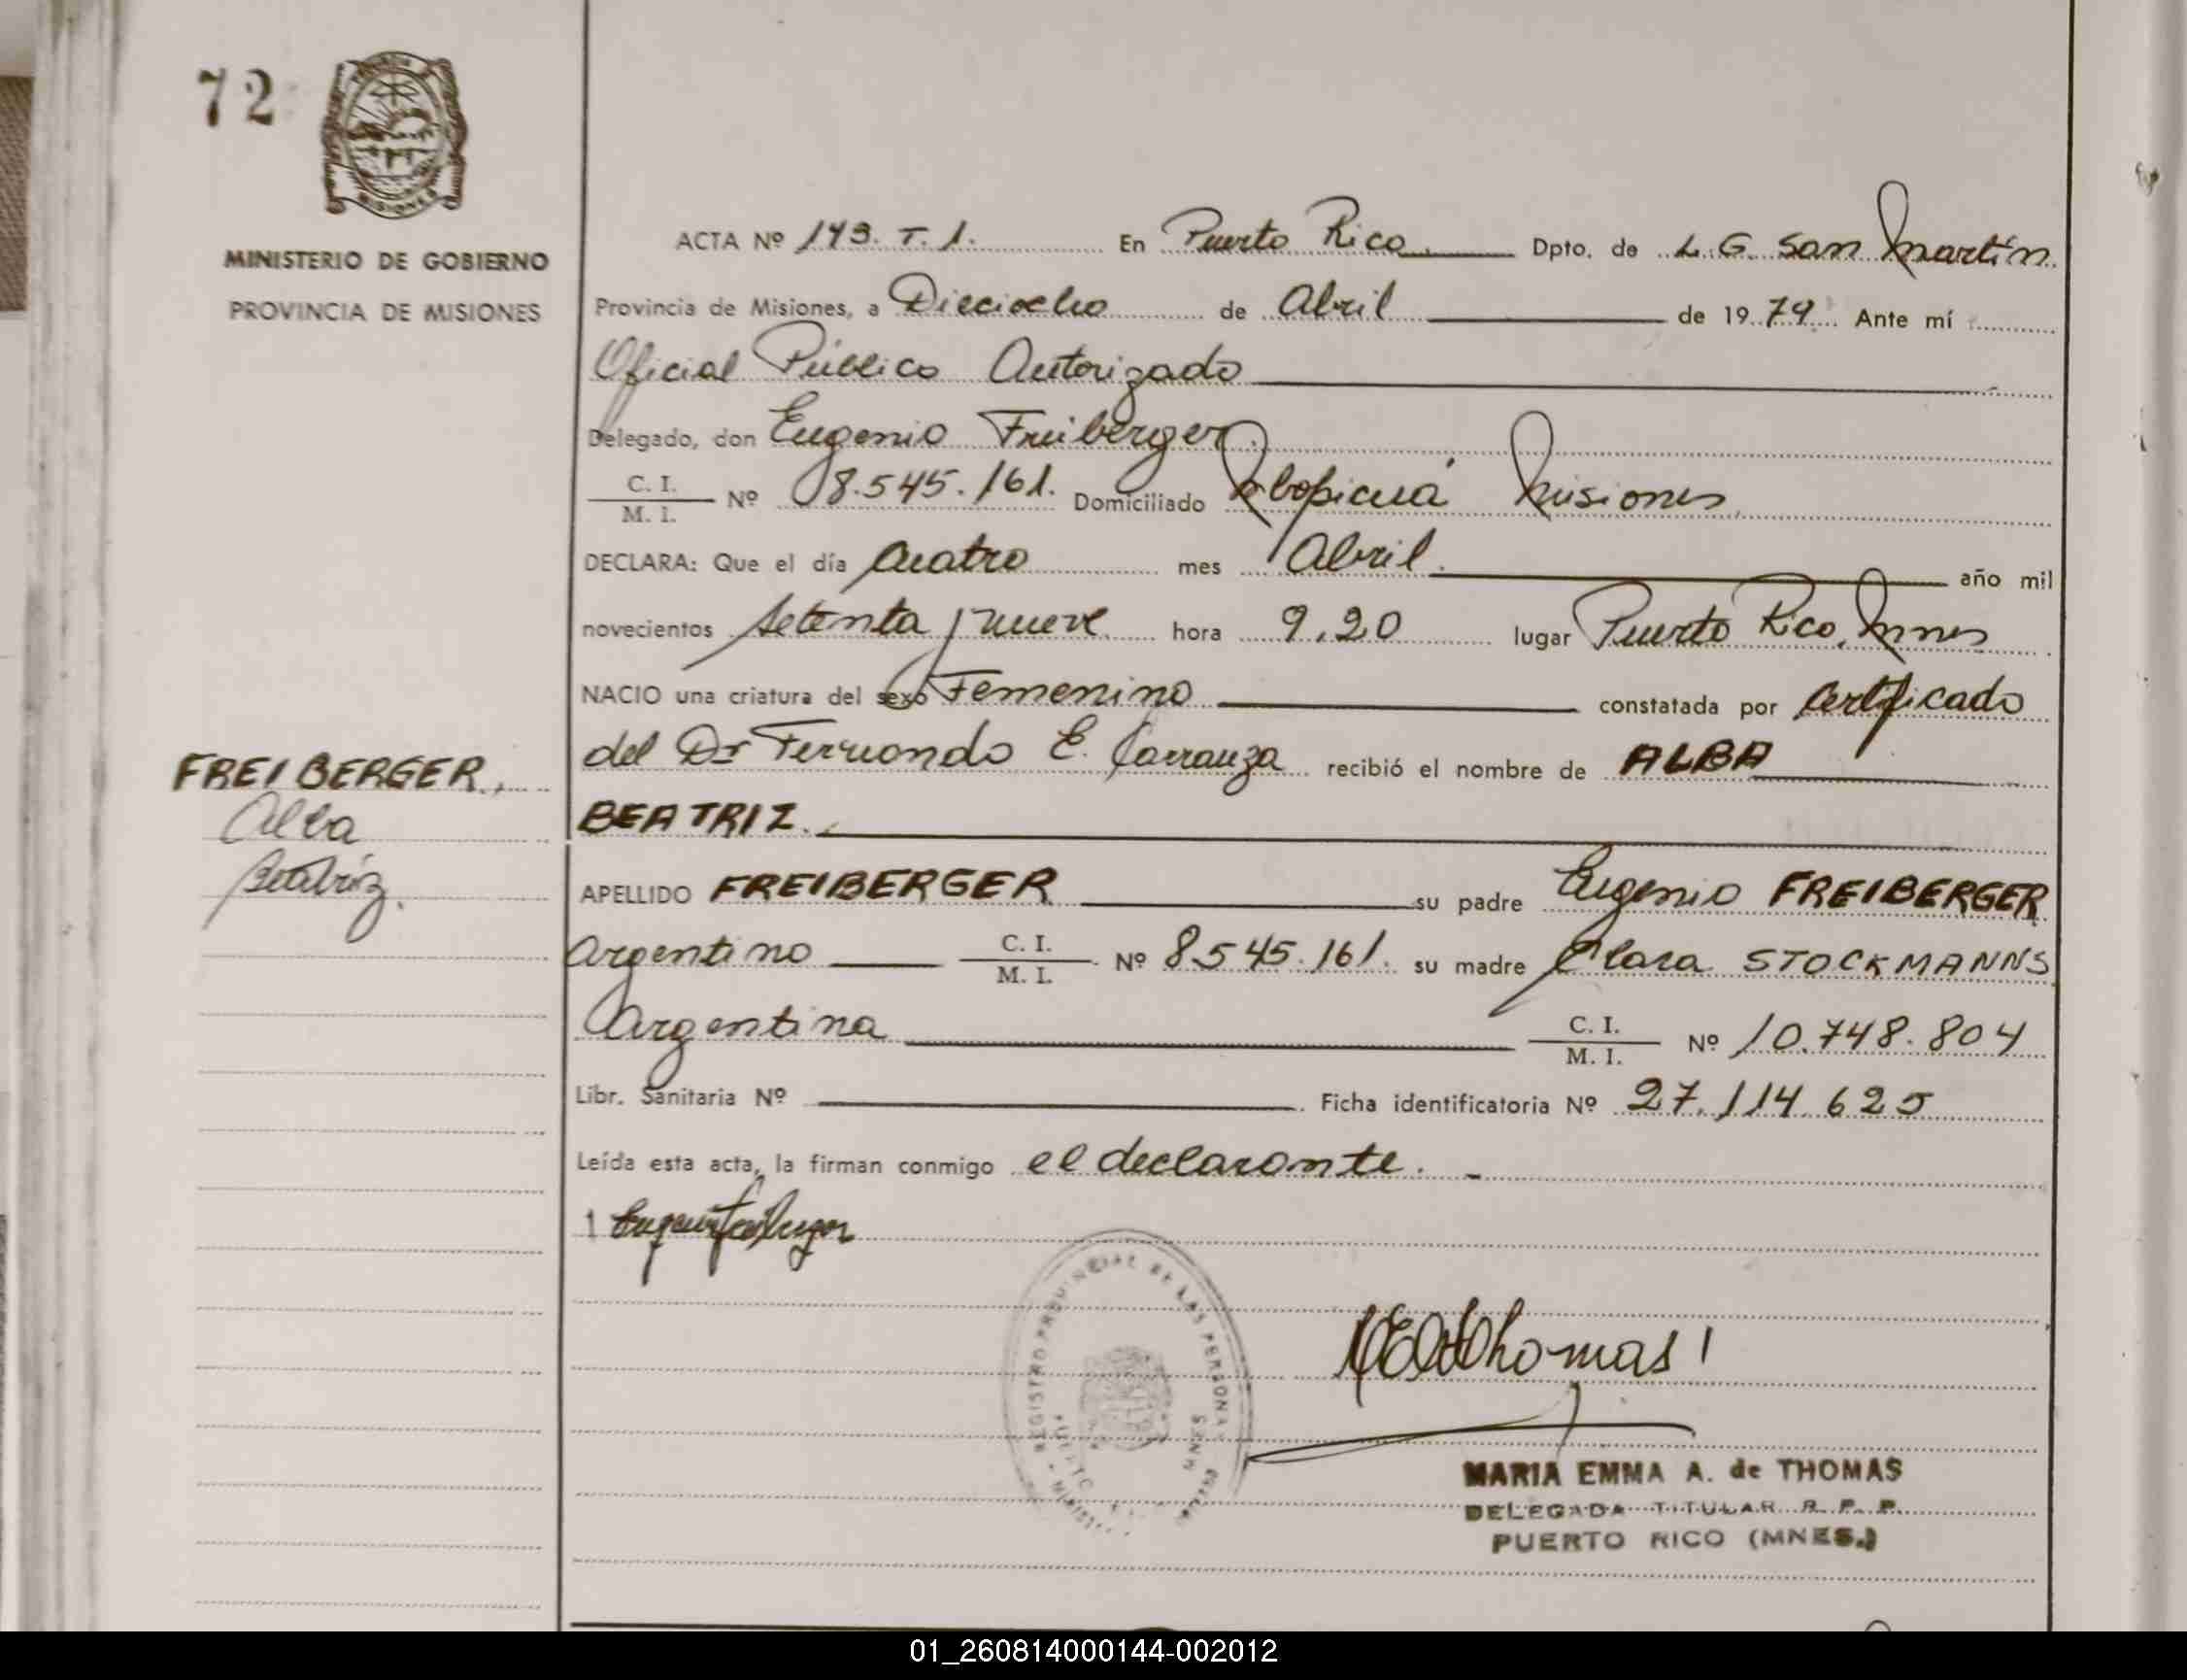 72
MISIONES
MINISTERIO DE GOBIERNO
PROVINCIA DE MISIONES
ACTA Nº 143. T. 1. En Puerto Rico Dpto. de L. G. San Martín.
Provincia de Misiones, a Dieciocho de Abril de 19 79. Ante mí
Oficial Público Autorizado
Delegado, don Eugenio Freiberger.
C. I.
M. I. Nº 8.545.161. Domiciliado Mbopicuá Misiones
DECLARA: Que el día Cuatro mes Abril. año mil
novecientos setenta y nueve hora 9,20 lugar Puerto Rico, Mnes
NACIO una criatura del sexo Femenino constatada por Certificado
del Dr Fernando E. Carranza recibió el nombre de ALBA
FREIBERGER,
Alba
Beatriz.
BEATRIZ.
APELLIDO FREIBERGER su padre Eugenio FREIBERGER
Argentino C. I.
M. I. Nº 8.545.161. su madre Clara STOCKMANNS
Argentina C. I.
M. I. Nº 10.748.804
Libr. Sanitaria Nº Ficha identificatoria Nº 27.114.625
Leída esta acta, la firman conmigo el declarante. -
REGISTRO PROVINCIAL DE LAS PERSONAS
MNES
Thomas
MARIA EMMA A. de THOMAS
DELEGADA TITULAR R. P. P.
PUERTO RICO (MNES.)
01_260814000144-002012